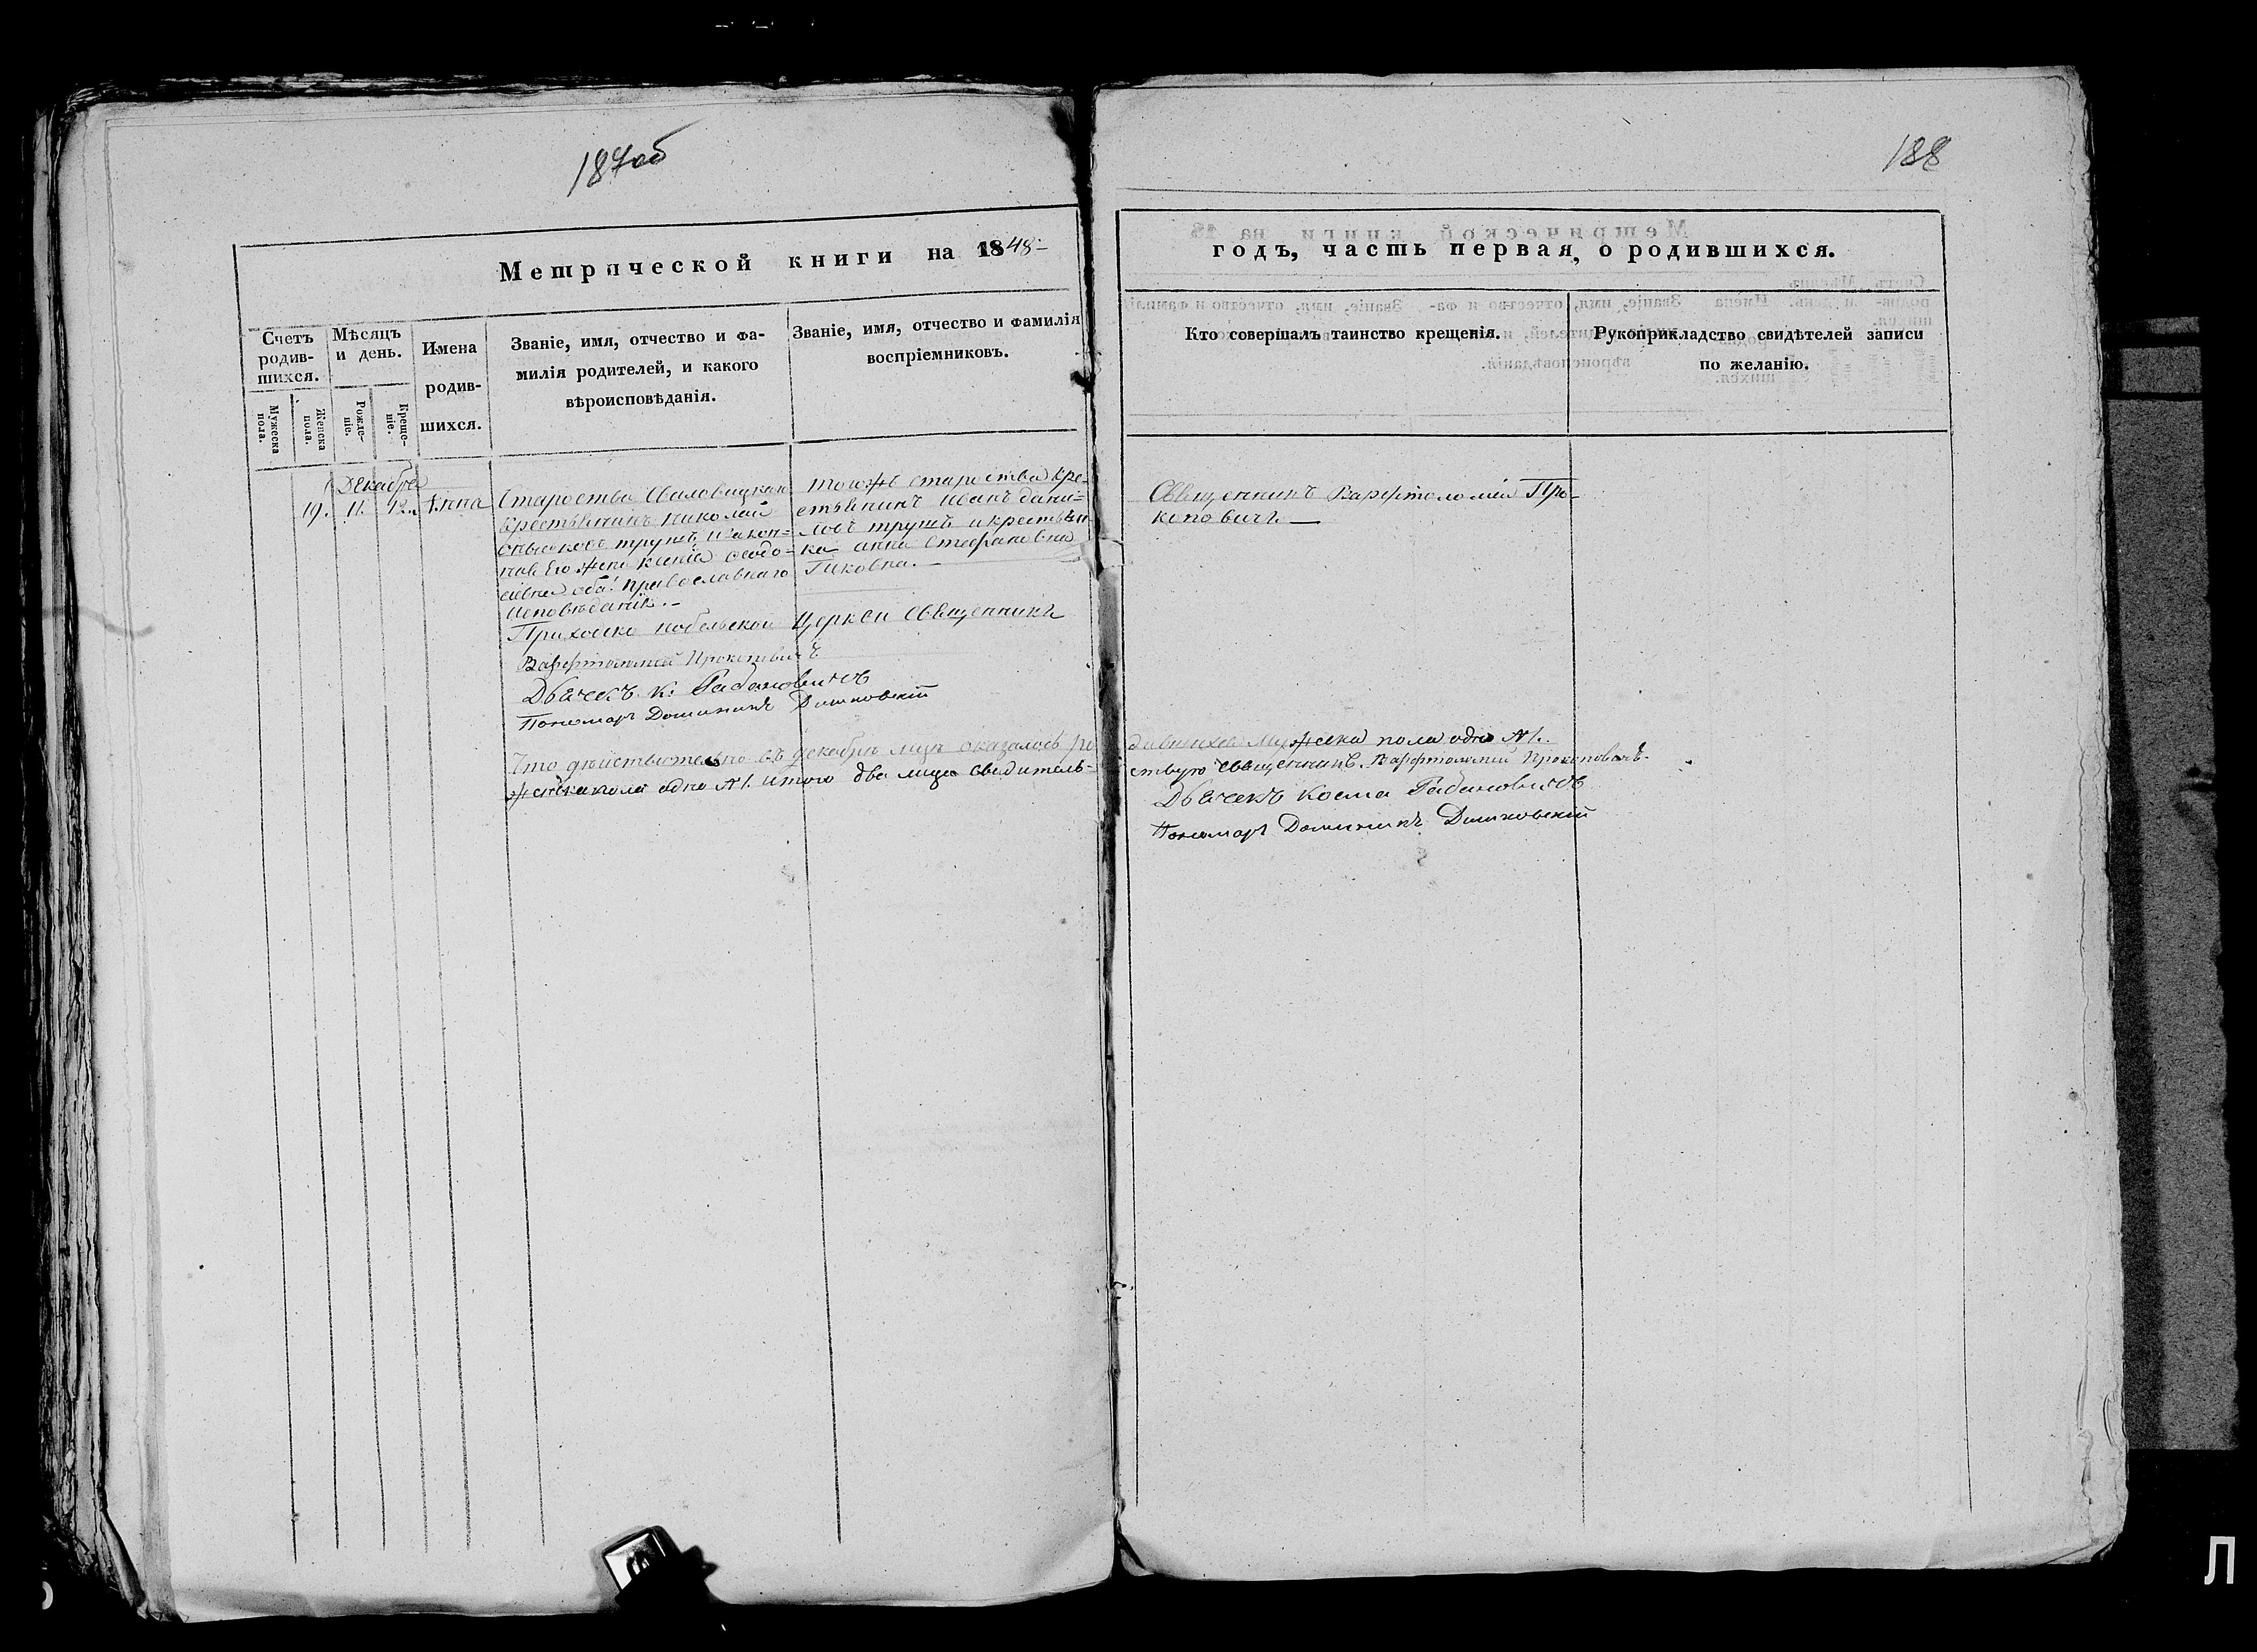 187об
188
Метрической книги на 1848-
годъ, часть первая, о родившихся.
Счетъ родив- шихся.
Мужеска пола.
Женска пола.
Мѣсяцъ и день.
Рожде- ніе.
Креще- ніе.
Имена
родив-
шихся.
Званіе, имя, отчество и фа-
милія родителей, и какого
вѣроисповѣданія.
Званіе, имя, отчество и фамилія
воспріемниковъ.
Кто совершалъ таинство крещенія.
Рукоприкладство свидѣтелей записи
по желанію.
Декабрь
19. 11. 12. Анна
Староства
Крестьянинъ Николай
трушъ, и закон-
ная Его жена ксенія Ѳеодо-
оба Православнаго
Исповѣданія.-
тогожъ староства кре-
стьянинъ Иванъ дани-
ловъ трушъ и крестьян-
ка анна Стефановна
Священникъ Варфоломей Про-
коповичъ —
Приходско нобельской Церкви Священникъ
Варфоломей Прокоповичъ
Дьячекъ К. Рабановичъ
Пономарь Доминикъ
Что дѣйствительно въ декабрѣ мцѣ оказалось ро
дившихся Мужеска пола одно №1.
женска пола одно №1. итого два лица свидѣтель-
ствую священникъ Варфоломей Прокоповичъ.
Дьячекъ Косма Рабановичъ
Пономарь Доминикъ
Л